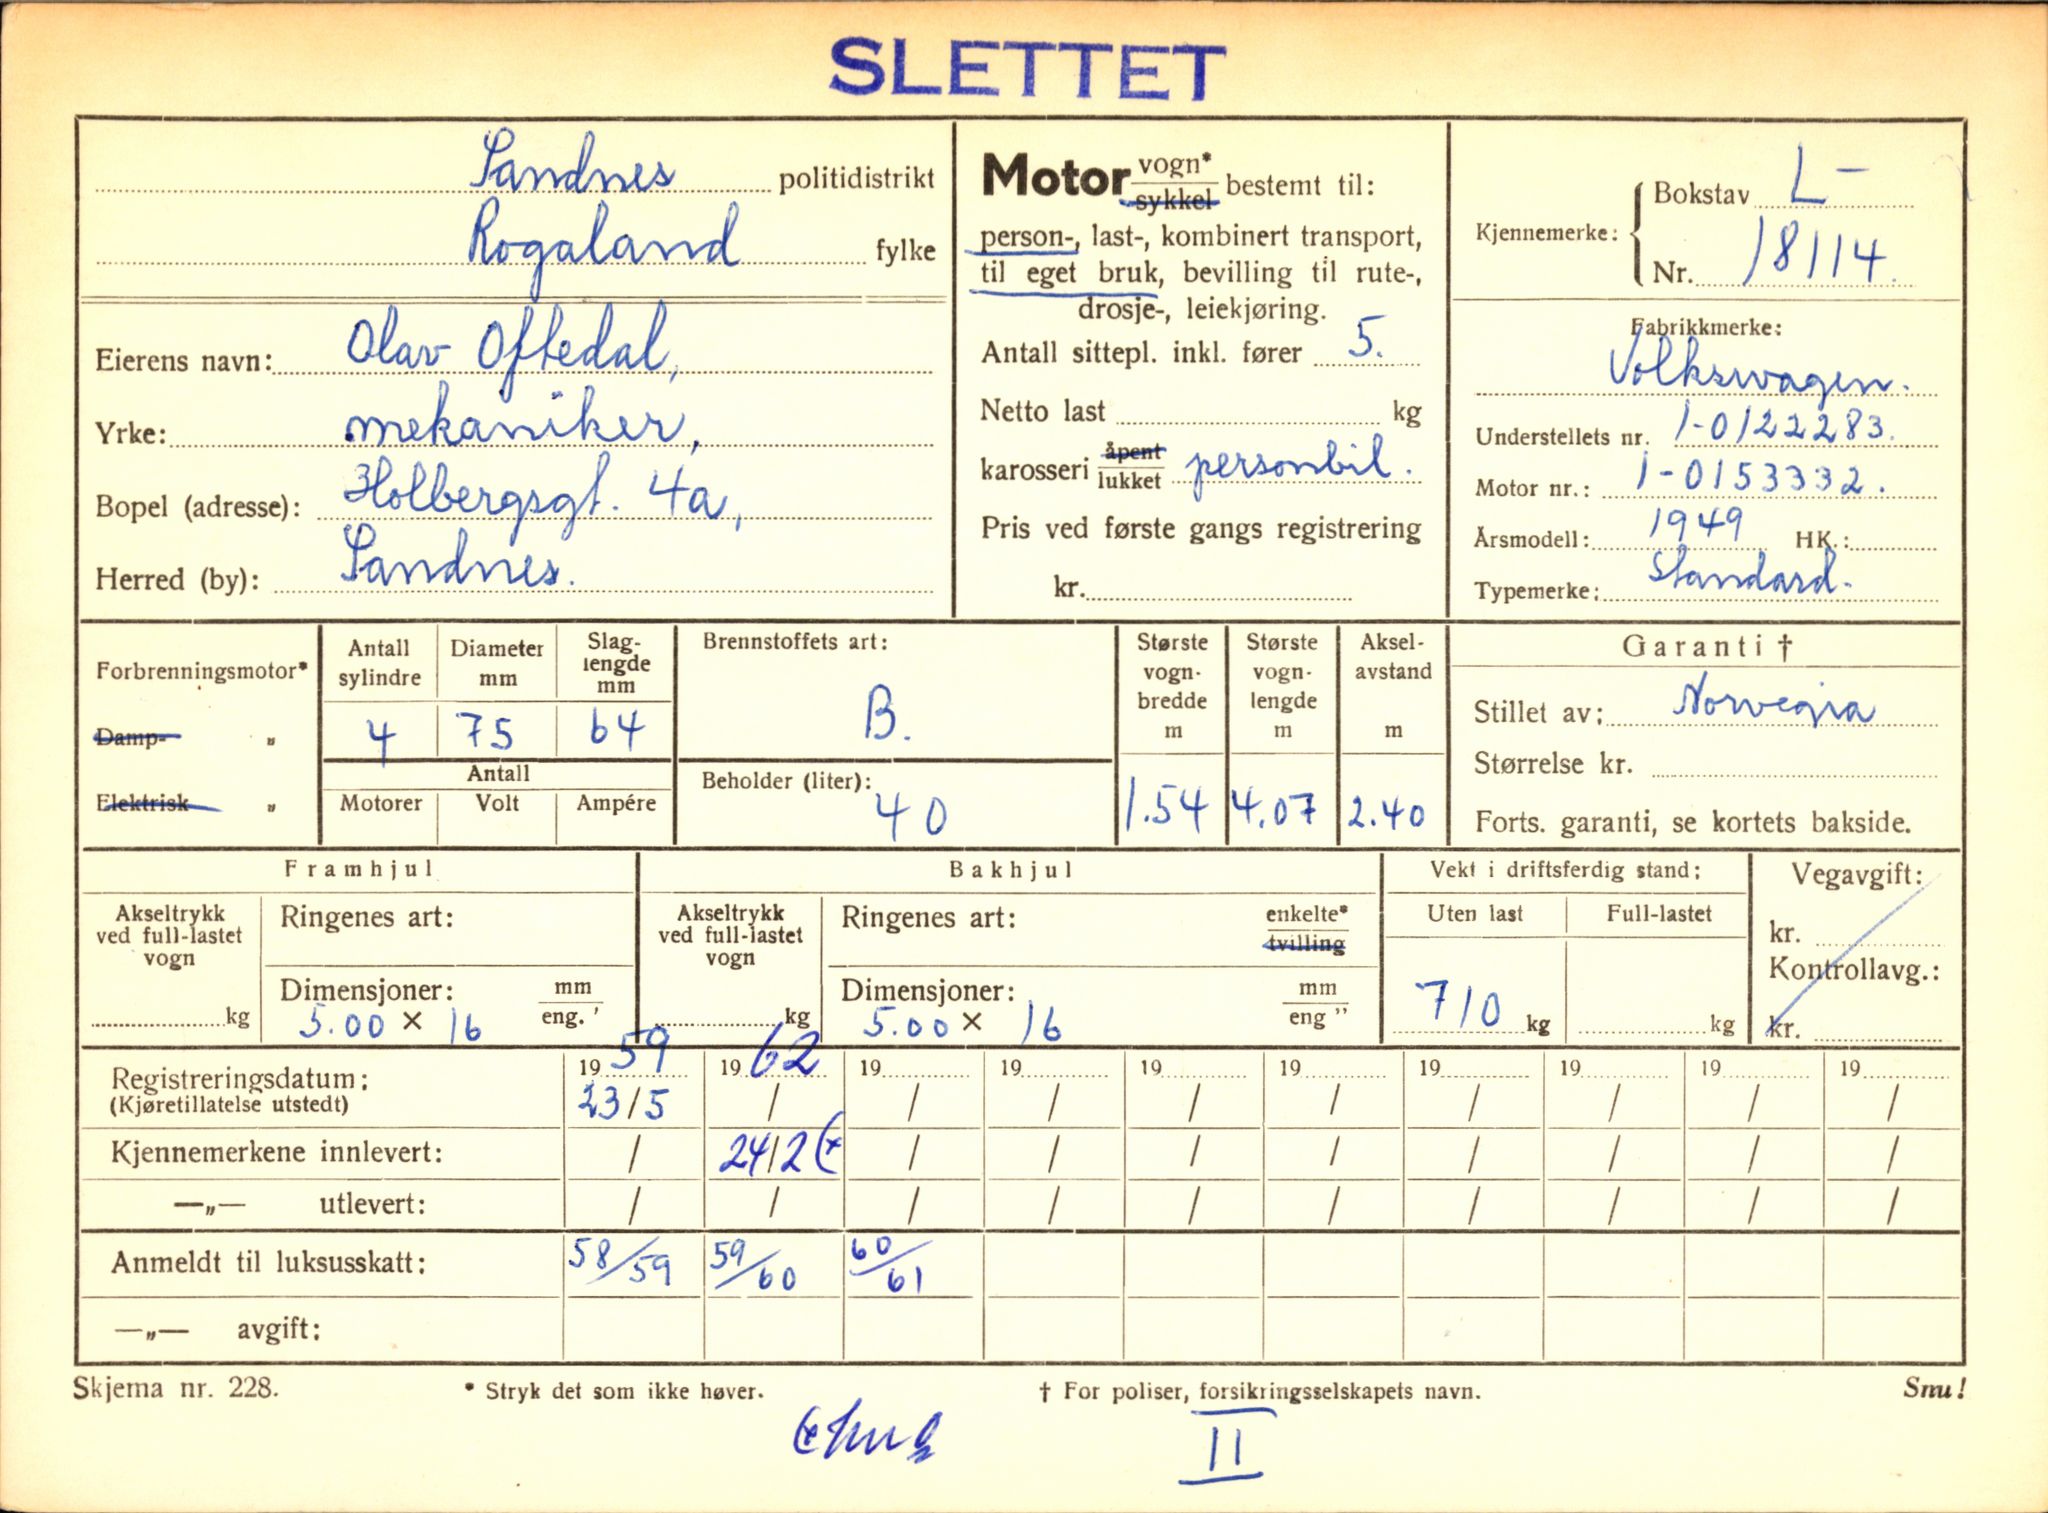 SLETTET
Sandnes politidistrikt
Rogaland fylke
Eierens navn: Olav Oftedal,
Yrke: mekaniker,
Bopel (adresse): Holbergsgt. 4a,
Herred (by): Sandnes.
Motor vogn* / sykkel bestemt til:
person-, last-, kombinert transport,
til eget bruk, bevilling til rute-,
drosje-, leiekjøring.
Antall sittepl. inkl. fører 5.
Netto last kg
karosseri åpent / lukket personbil.
Pris ved første gangs registrering
kr.
Kjennemerke: Bokstav L-
Nr. 18114.
Fabrikkmerke:
Volkswagen.
Understellets nr. 1-0122283.
Motor nr.: 1-0153332.
Årsmodell: 1949 HK.:
Typemerke: Standard.
Forbrenningsmotor*
Damp- „
Elektrisk „
Antall sylindre
4
Diameter mm
75
Slag-lengde mm
64
Antall
Motorer Volt Ampére
Brennstoffets art:
B.
Beholder (liter):
40
Største vogn-bredde m
1.54
Største vogn-lengde m
4.07
Aksel-avstand m
2.40
Garanti †
Stillet av: Norvegia
Størrelse kr.
Forts. garanti, se kortets bakside.
Framhjul
Akseltrykk ved full-lastet vogn
kg
Ringenes art:
Dimensjoner: mm / eng. '
5.00 × 16
Bakhjul
Akseltrykk ved full-lastet vogn
kg
Ringenes art: enkelte* / tvilling
Dimensjoner: mm / eng "
5.00 × 16
Vekt i driftsferdig stand:
Uten last Full-lastet
710 kg kg
Vegavgift:
kr.
Kontrollavg.:
kr.
Registreringsdatum: 19 59 19 62 19 19 19 19 19 19 19 19
(Kjøretillatelse utstedt) 23/5 / / / / / / / / /
Kjennemerkene innlevert: / 24/2 (x / / / / / / / /
—„— utlevert: / / / / / / / / / /
Anmeldt til luksusskatt: 58/59 59/60 60/61
—„— avgift:
Skjema nr. 228. * Stryk det som ikke høver. † For poliser, forsikringsselskapets navn. Snu!
II